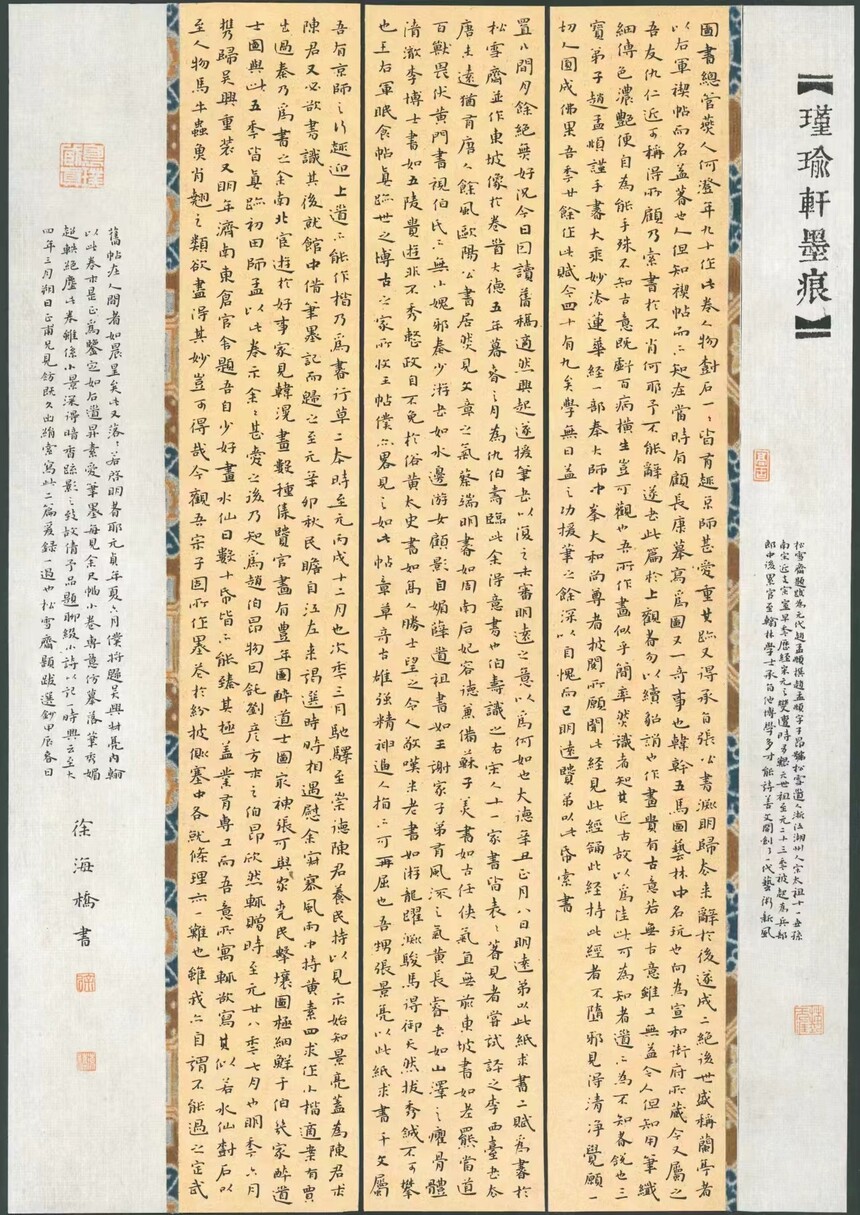 【瑾瑜軒墨痕】
松雪齋題跋為元代趙孟頫撰趙孟頫字子昂號松雪道人浙江湖州人宋太祖十一世孫
南宋近支宗室早年歷經宋元之變遭時多艱元世祖至元二十三年被起為兵部
郎中後累官至翰林學士承旨他博學多才能詩善文開創了一代藝術新風
圖書總管燕人何澄年九十作此卷人物對石一一皆有趣京師甚愛重其跡又得承旨張公書淵明歸去来辭於後遂成二絕後世盛稱蘭亭者
以右軍禊帖而名益著也人但知禊帖而不知在當時有顧長康摹寫為圖又一奇事也韓幹五馬圖藝林中名玩也向為宣和御府所藏今又屬之
吾友仇仁近可稱得所顧乃索書於不肖何耶予不能辭遂書此篇於上觀者勿以續貂誚也作畫貴有古意若無古意雖工無益今人但知用筆纖
細傅色濃艷便自為能手殊不知古意既虧百病橫生豈可觀也吾所作畫似乎簡率然識者知其近古故以為佳此可為知者道不為不知者說也三
寶弟子趙孟頫謹手書大乘妙法蓮華經一部奉大師中峯大和尚尊者披閱所願聞此經見此經誦此經持此經者不隨邪見得清淨覺願一
切人同成佛果吾年廿餘作此賦今四十有九矣學無日益之功援筆之餘深以自愧而已明遠賢弟以此帋索書
置几間月餘絕無好況今日因讀舊稿適然興起遂援筆書以復之未審明遠之意以為何如也大德辛丑正月八日明遠弟以此紙求書二賦為書於
松雪齋並作東坡像於卷首大德五年暮春之月為仇伯壽臨此全得意書也伯壽識之右宋人十一家書皆表表著見者嘗試評之李西臺書去
唐未遠猶有唐人餘風歐陽公書居然見文章之氣蔡端明書如周南后妃容德兼備蘇子美書如古任俠氣直無前東坡書如老羆當道
百獸畏伏黃門書視伯氏不無小媿邪秦少游書如水邊游女顧影自媚薛道祖書如王謝家子弟有風流之氣黃長睿書如山澤之癯骨體
清澈李博士書如五陵貴遊非不秀整政自不免於俗黃太史書如高人勝士望之令人敬嘆米老書如游龍躍淵駿馬得御天然拔秀誠不可攀
也王右軍眠食帖真跡世之博古之家所收王帖僕亦畧見之如此帖章草奇古雄強精神逼人指不可再屈也吾甥張景亮以此紙求書千文屬
吾有京師之行趣迎上道不能作楷乃為書行草二本時至元丙戌十二月也次年三月馳驛至崇德陳君養民持以見示始知景亮蓋為陳君求
陳君又必欲書識其後就館中借筆墨記而歸之至元辛卯秋民瞻自江左来謁選時時相遇慰余寂寥風雨中持黃素四求作小楷適業有貴
出過秦乃為書之余南北宦遊於好事家見韓滉畫數種集賢官畫有豐年圖醉道士圖最神張可與家堯民擊壤圖極細鮮于伯幾家醉道
士圖與此五牛皆真跡初田師孟以此卷示余余甚愛之後乃知為趙伯昂物因託劉彥方求之伯昂欣然輒贈時至元廿八年七月也明年六月
攜歸吳興重裝又明年濟南東倉官舍題吾自少好畫水仙日數十帋皆不能臻其極盖業有專工而吾意所寓輒欲寫其似若水仙對石以
至人物馬牛蟲魚肖翹之類欲盡得其妙豈可得哉今觀吾宗子固所作墨花於紛披側塞中各就條理亦一難也雖我亦自謂不能過之定武
舊帖在人間者如晨星矣此又落落若啓明者耶元貞年夏六月僕將歸吳興叔亮內翰
以此卷求是正為鑒定如右道昇素愛筆墨每見余尺幅小卷專意仿摹落筆秀媚
超軼絕塵此卷雖係小景深得暗香疏影之致故倩予品題聊綴小詩以記一時興云至大
四年三月朔日正甫兄見訪既久出緗索寫此二篇爰錄一過也松雪齋題跋選鈔甲辰春日
徐海橋書